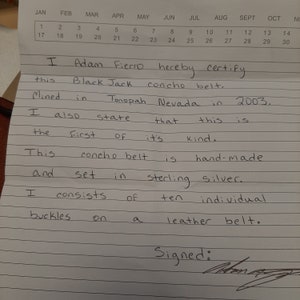 JAN FEB MAR APR MAY JUN JUL AUG SEPT OCT
1 2 3 4 5 6 7 8 9 10 11 12 13 14
17 18 19 20 21 22 23 24 25 26 27 28 29 30
I Adam Fierro hereby certify
this Black Jack concho belt.
Mined in Tonopah Nevada in 2003.
I also state that this is
the first of it's kind.
This concho belt is hand-made
and set in sterling silver.
I consists of ten individual
buckles on a leather belt.
Signed: